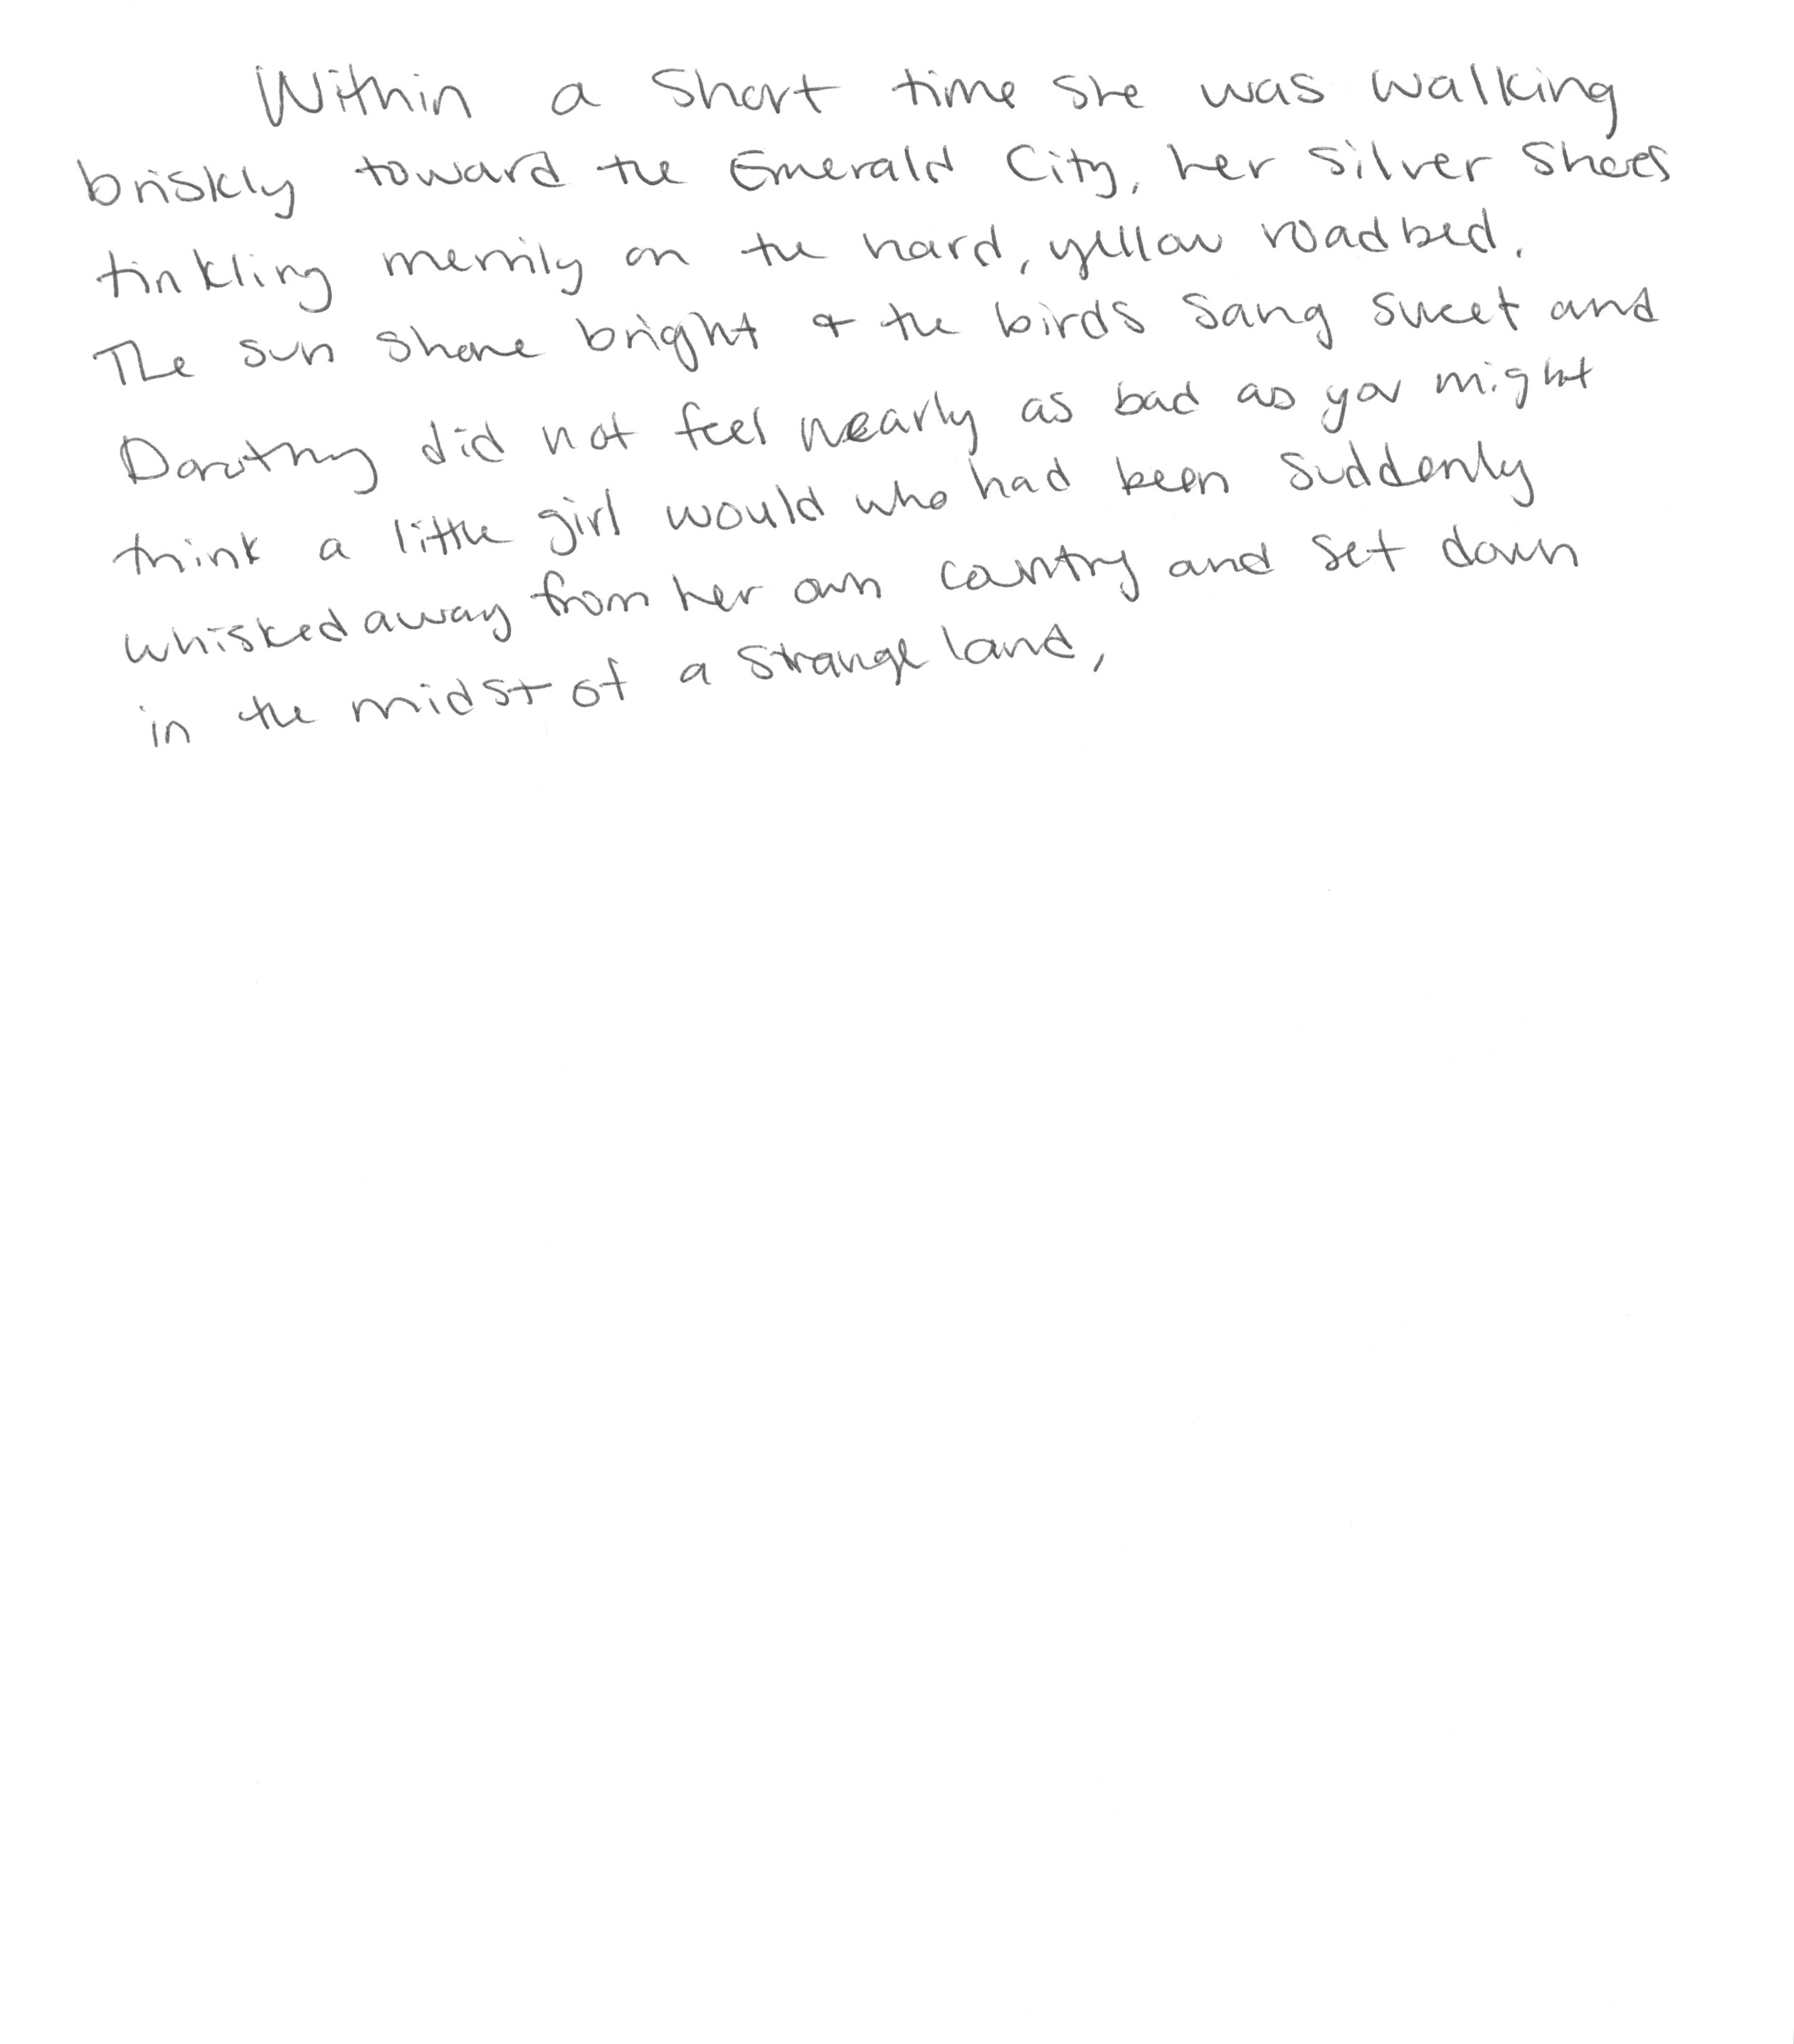 Within a short time she was walking
briskly toward the Emerald City, her silver shoes
tinkling merrily on the hard, yellow roadbed.
The sun shone bright & the birds sang sweet and
Dorothy did not feel nearly as bad as you might
think a little girl would who had been suddenly
whisked away from her own country and set down
in the midst of a strange land,